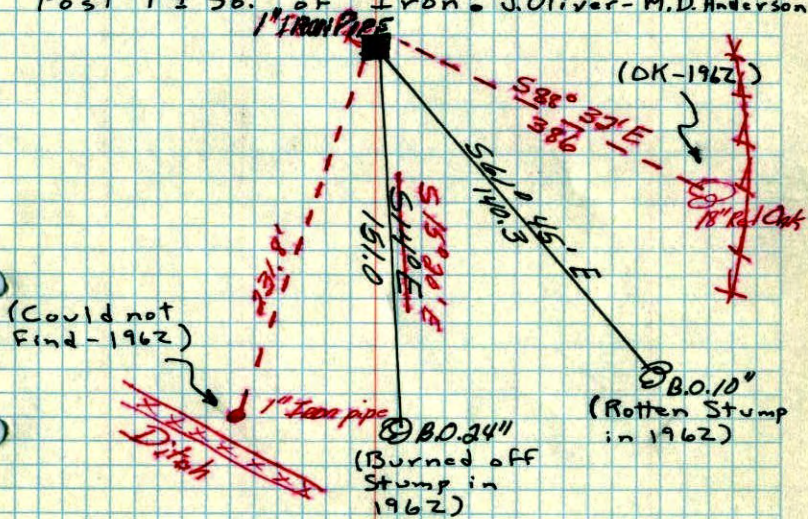 Post 1'± So. of Iron. J.Oliver-M.D.Anderson
1" IRON PIPE
(OK-1962)
S88° 32' E
386
18" Red Oak
S61° 45' E
140.3
S15°20'E
S14°E
151.0
231.8'
(Could not
Find-1962)
1" Iron pipe
Ditch
B.O.24"
(Burned off
Stump in
1962)
B.O.10"
(Rotten Stump
in 1962)